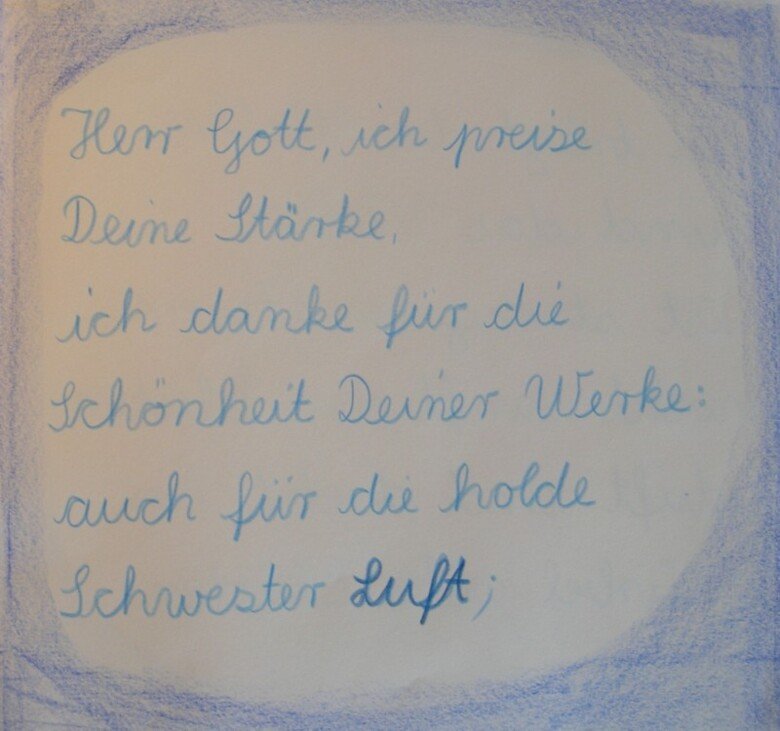 Herr Gott, ich preise
Deine Stärke,
ich danke für die
Schönheit Deiner Werke:
auch für die holde
Schwester Luft;